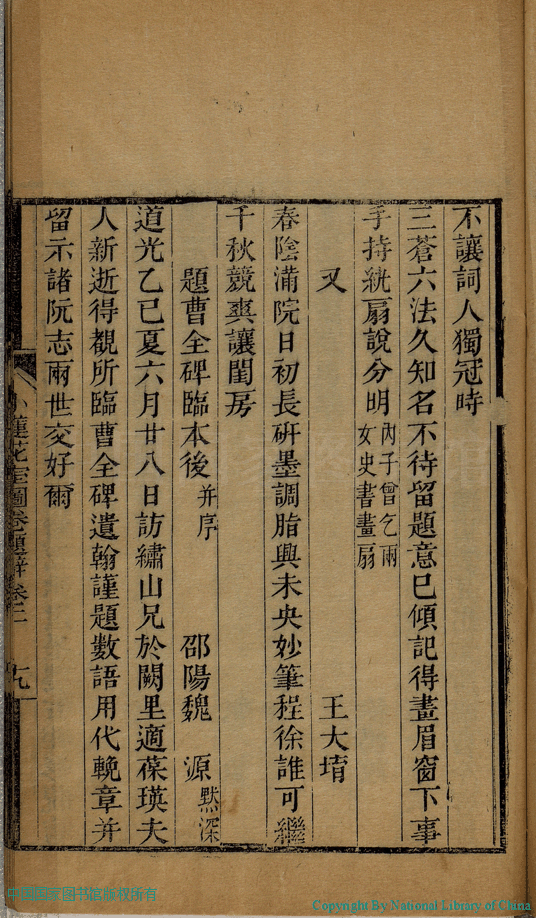 不讓詞人獨冠時
三蒼六法久知名不待留題意已傾記得畫眉窗下事
手持紈扇說分明丙子曾乞兩女史書畫扇
又　王大堉
春陰滿院日初長研墨調脂興未央妙筆程徐誰可繼
千秋競爽讓閨房
題曹全碑臨本後并序　邵陽魏　源默深
道光乙巳夏六月廿八日訪繡山兄於闕里適葆瑛夫
人新逝得觀所臨曹全碑遺翰謹題數語用代輓章并
留示諸阮志兩世交好爾
小蓮花室圖卷題辭卷二　九
中国国家图书馆版权所有
Copyright By National Library of China